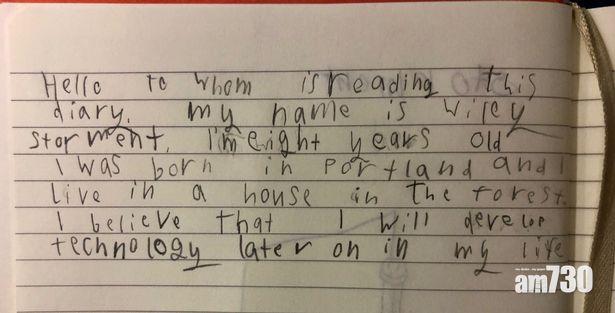 Hello to whom is reading this
diary. my name is wiley
stormENT. I'm eight years old
I was born in Portland and I
Live in a house in the forest.
I believe that I will develop
technology later on in my life
am730